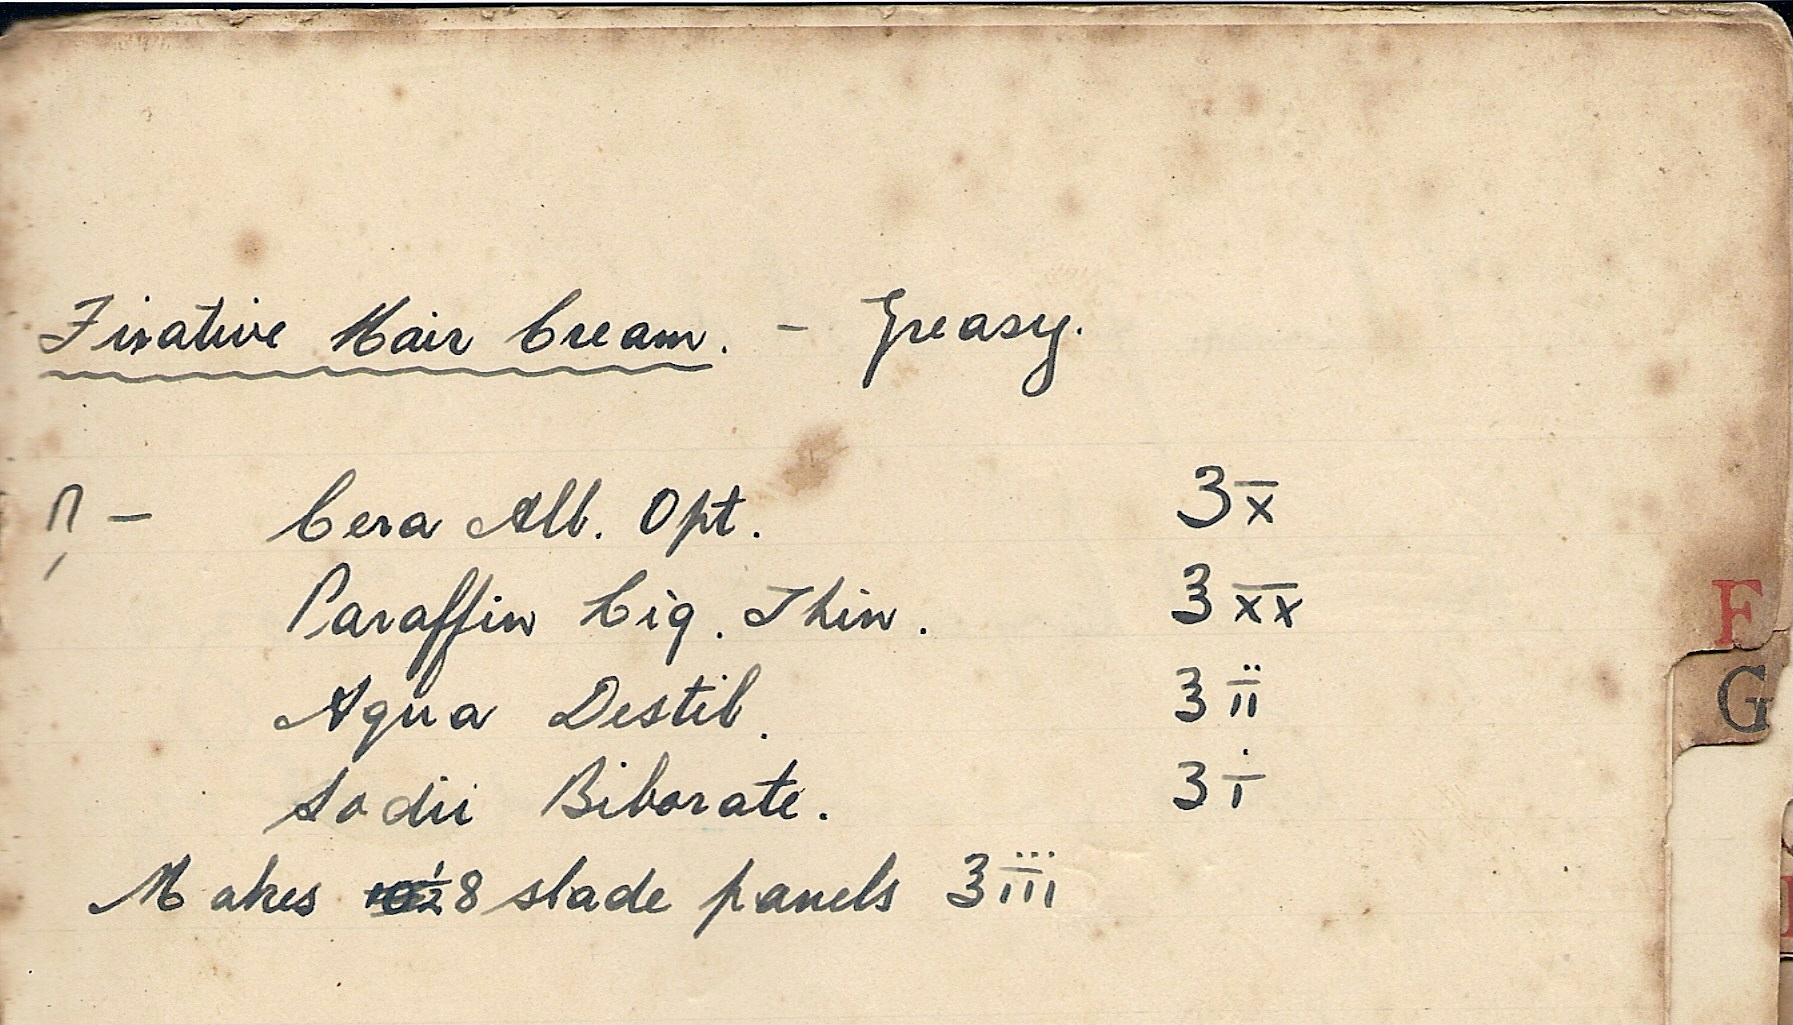 Fixative Hair Cream. - Greasy.
℞ - Cera Alb. Opt. ʒ x
Paraffin Liq. Thin. ʒ xx
Aqua Destil. ʒ ii
Sodii Biborate. ʒ i
Makes 8 slade panels ʒ iii
F
G